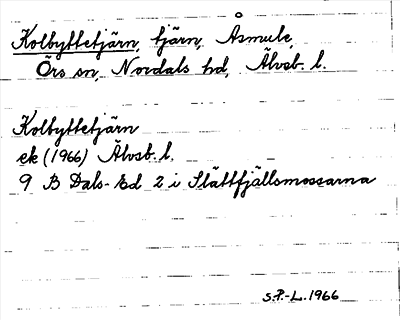 Kolbyttetjärn, tjärn, Åsmule,
Örs sn, Nordals hd, Älvsb. l.
Kolbyttetjärn
ek (1966) Älvsb. l.
9 B Dals-Ed 2 i Slättfjällsmossarna
S.P.-L. 1966